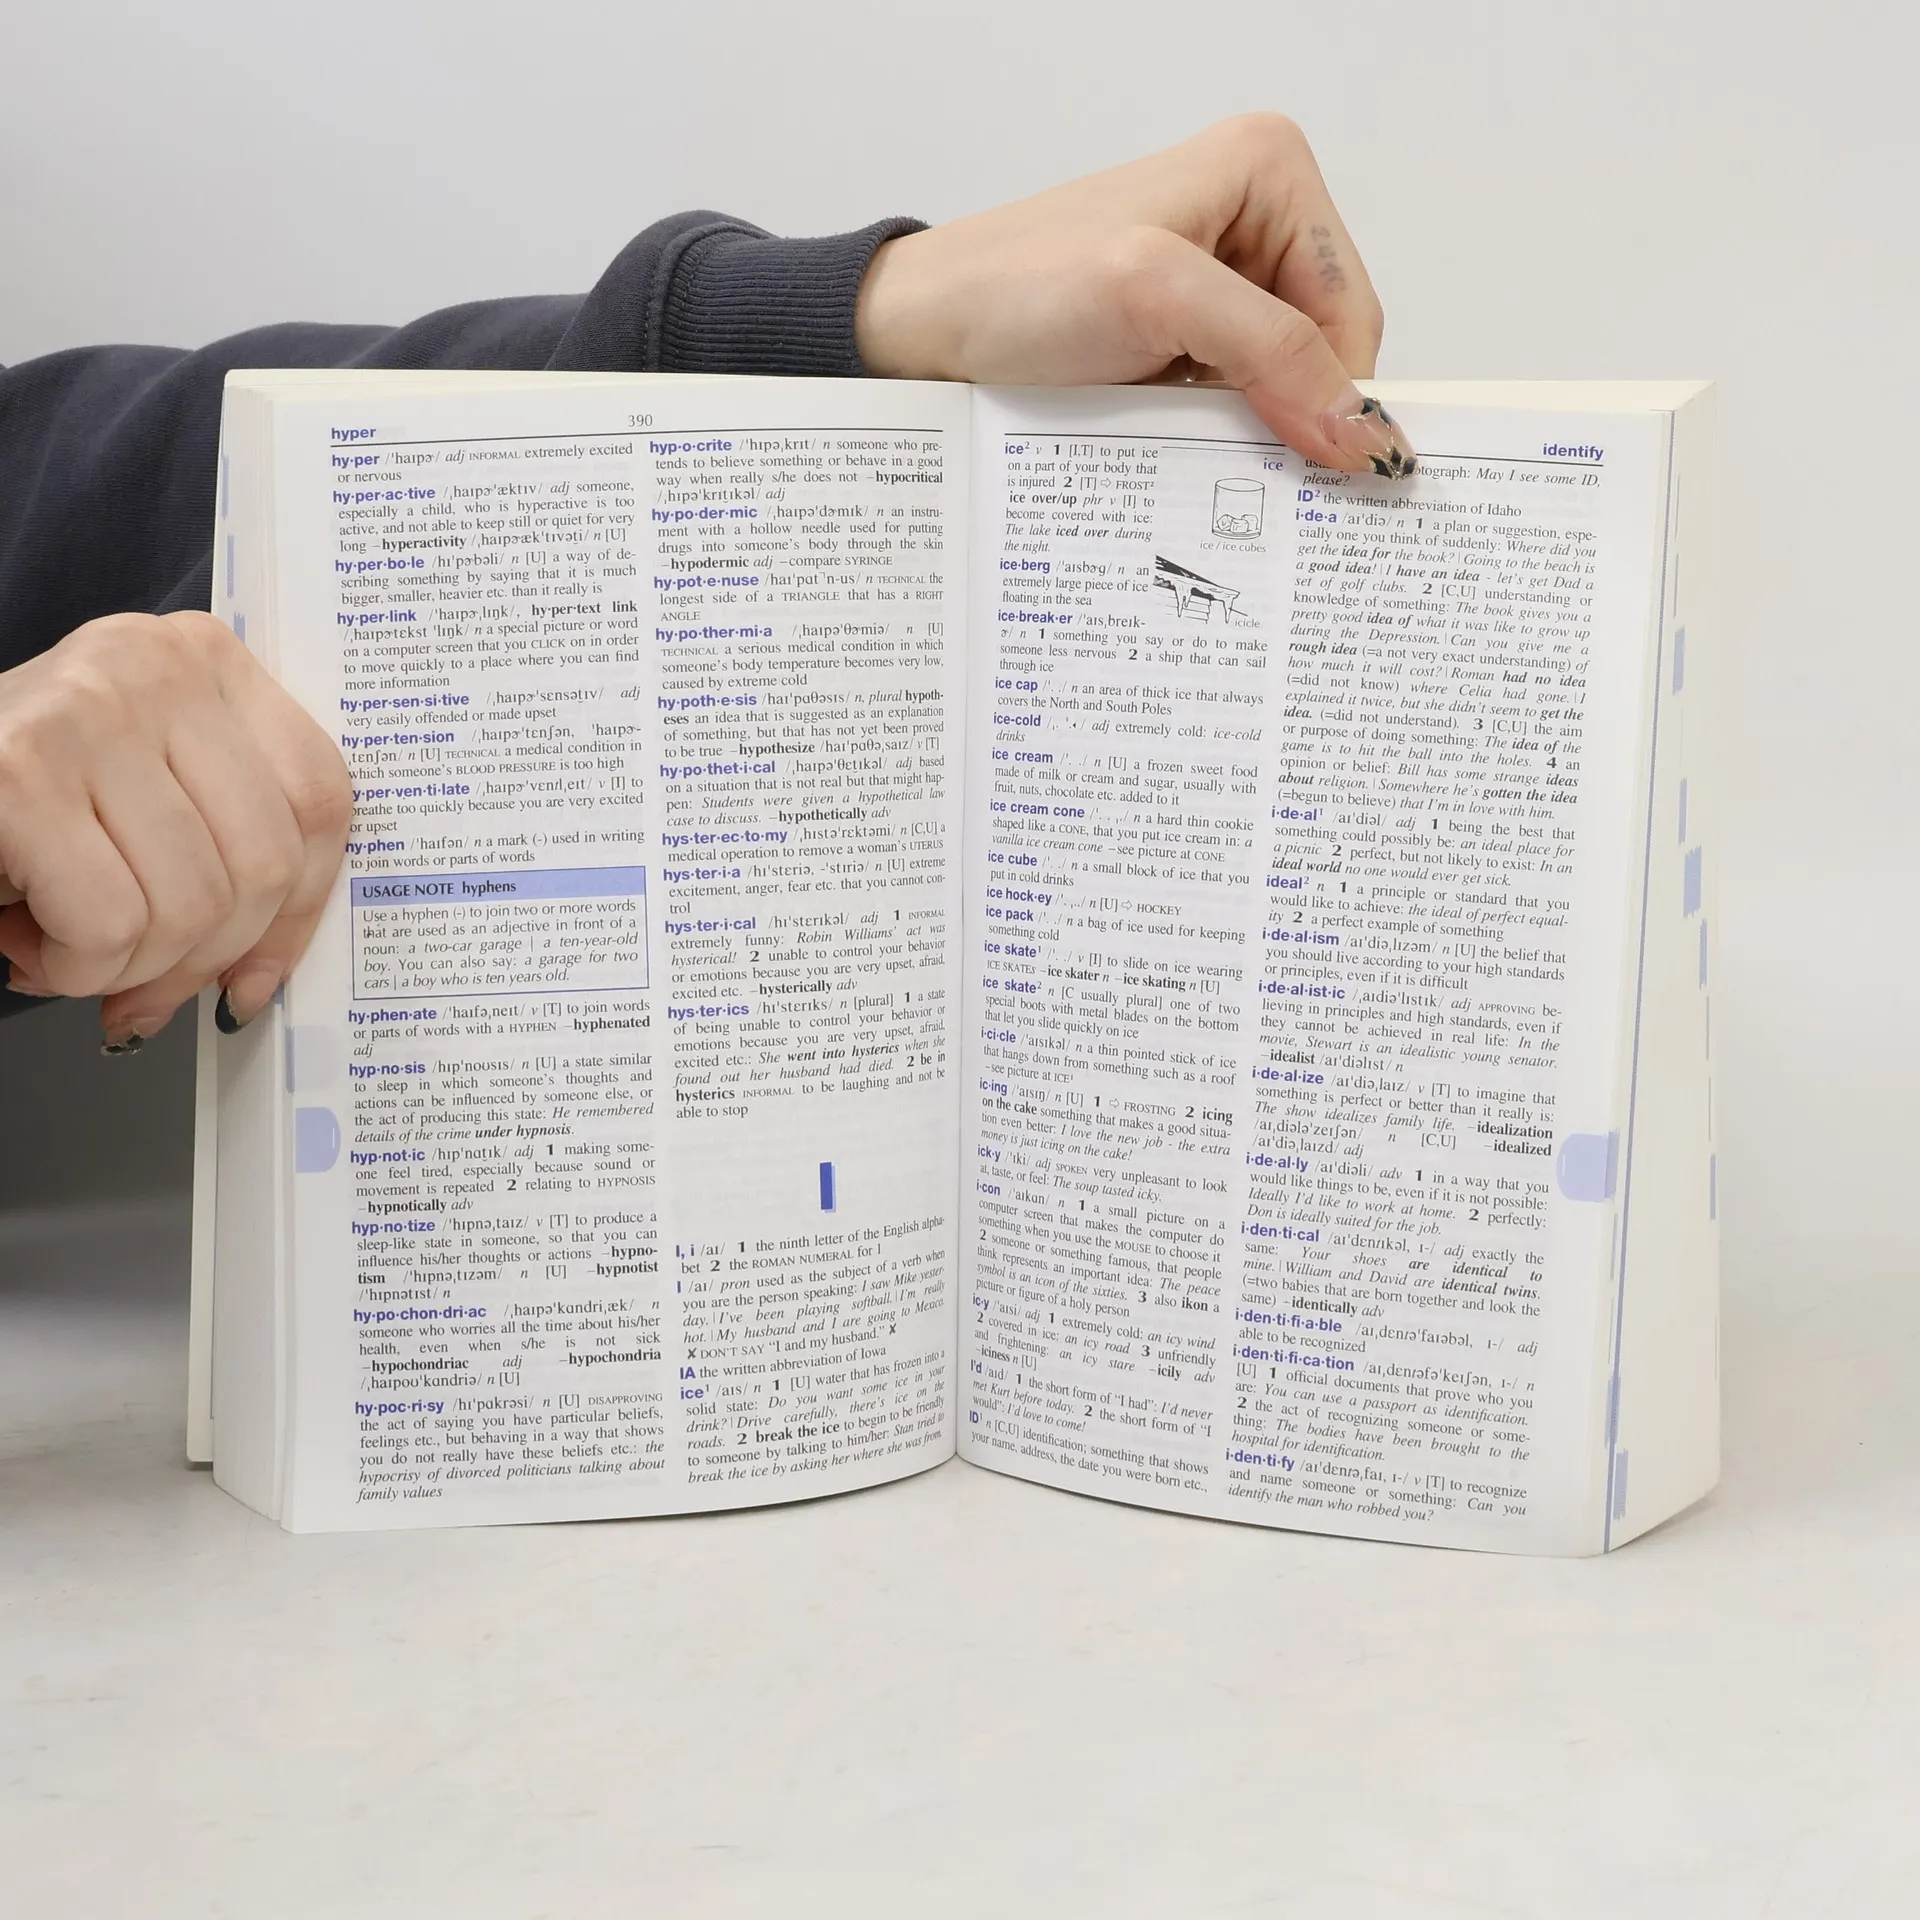 hyper
390
hy·per /ˈhaɪpɚ/ adj INFORMAL extremely excited
or nervous
hy·per·ac·tive /ˌhaɪpɚˈæktɪv/ adj someone,
especially a child, who is hyperactive is too
active, and not able to keep still or quiet for very
long –hyperactivity /ˌhaɪpɚækˈtɪvət̬i/ n [U]
hy·per·bo·le /haɪˈpɚbəli/ n [U] a way of de-
scribing something by saying that it is much
bigger, smaller, heavier etc. than it really is
hy·per·link /ˈhaɪpɚˌlɪŋk/, hy·per·text link
/ˌhaɪpɚtɛkst ˈlɪŋk/ n a special picture or word
on a computer screen that you CLICK on in order
to move quickly to a place where you can find
more information
hy·per·sen·si·tive /ˌhaɪpɚˈsɛnsət̬ɪv/ adj
very easily offended or made upset
hy·per·ten·sion /ˌhaɪpɚˈtɛnʃən, ˈhaɪpɚ-
ˌtɛnʃən/ n [U] TECHNICAL a medical condition in
which someone's BLOOD PRESSURE is too high
y·per·ven·ti·late /ˌhaɪpɚˈvɛntlˌeɪt/ v [I] to
breathe too quickly because you are very excited
or upset
hy·phen /ˈhaɪfən/ n a mark (-) used in writing
to join words or parts of words
USAGE NOTE hyphens
Use a hyphen (-) to join two or more words
that are used as an adjective in front of a
noun: a two-car garage | a ten-year-old
boy. You can also say: a garage for two
cars | a boy who is ten years old.
hy·phen·ate /ˈhaɪfəˌneɪt/ v [T] to join words
or parts of words with a HYPHEN –hyphenated
adj
hyp·no·sis /hɪpˈnoʊsɪs/ n [U] a state similar
to sleep in which someone's thoughts and
actions can be influenced by someone else, or
the act of producing this state: He remembered
details of the crime under hypnosis.
hyp·not·ic /hɪpˈnɑt̬ɪk/ adj 1 making some-
one feel tired, especially because sound or
movement is repeated 2 relating to HYPNOSIS
–hypnotically adv
hyp·no·tize /ˈhɪpnəˌtaɪz/ v [T] to produce a
sleep-like state in someone, so that you can
influence his/her thoughts or actions –hypno-
tism /ˈhɪpnəˌtɪzəm/ n [U] –hypnotist
/ˈhɪpnətɪst/ n
hy·po·chon·dri·ac /ˌhaɪpəˈkɑndriˌæk/ n
someone who worries all the time about his/her
health, even when s/he is not sick
–hypochondriac adj –hypochondria
/ˌhaɪpoʊˈkɑndriə/ n [U]
hy·poc·ri·sy /hɪˈpɑkrəsi/ n [U] DISAPPROVING
the act of saying you have particular beliefs,
feelings etc., but behaving in a way that shows
you do not really have these beliefs etc.: the
hypocrisy of divorced politicians talking about
family values
hyp·o·crite /ˈhɪpəˌkrɪt/ n someone who pre-
tends to believe something or behave in a good
way when really s/he does not –hypocritical
/ˌhɪpəˈkrɪt̬ɪkəl/ adj
hy·po·der·mic /ˌhaɪpəˈdɚmɪk/ n an instru-
ment with a hollow needle used for putting
drugs into someone's body through the skin
–hypodermic adj –compare SYRINGE
hy·pot·e·nuse /haɪˈpɑt˺n-us/ n TECHNICAL the
longest side of a TRIANGLE that has a RIGHT
ANGLE
hy·po·ther·mi·a /ˌhaɪpəˈθɚmiə/ n [U]
TECHNICAL a serious medical condition in which
someone's body temperature becomes very low,
caused by extreme cold
hy·poth·e·sis /haɪˈpɑθəsɪs/ n, plural hypoth-
eses an idea that is suggested as an explanation
of something, but that has not yet been proved
to be true –hypothesize /haɪˈpɑθəˌsaɪz/ v [T]
hy·po·thet·i·cal /ˌhaɪpəˈθɛt̬ɪkəl/ adj based
on a situation that is not real but that might hap-
pen: Students were given a hypothetical law
case to discuss. –hypothetically adv
hys·ter·ec·to·my /ˌhɪstəˈrɛktəmi/ n [C,U] a
medical operation to remove a woman's UTERUS
hys·ter·i·a /hɪˈstɛriə, -ˈstɪriə/ n [U] extreme
excitement, anger, fear etc. that you cannot con-
trol
hys·ter·i·cal /hɪˈstɛrɪkəl/ adj 1 INFORMAL
extremely funny: Robin Williams' act was
hysterical! 2 unable to control your behavior
or emotions because you are very upset, afraid,
excited etc. –hysterically adv
hys·ter·ics /hɪˈstɛrɪks/ n [plural] 1 a state
of being unable to control your behavior or
emotions because you are very upset, afraid,
excited etc.: She went into hysterics when she
found out her husband had died. 2 be in
hysterics INFORMAL to be laughing and not be
able to stop
I
I, i /aɪ/ 1 the ninth letter of the English alpha-
bet 2 the ROMAN NUMERAL for 1
I /aɪ/ pron used as the subject of a verb when
you are the person speaking: I saw Mike yester-
day. | I've been playing softball. | I'm really
hot. | My husband and I are going to Mexico.
✗ DON'T SAY "I and my husband." ✗
IA the written abbreviation of Iowa
ice¹ /aɪs/ n 1 [U] water that has frozen into a
solid state: Do you want some ice in your
drink? | Drive carefully, there's ice on the
roads. 2 break the ice to begin to be friendly
to someone by talking to him/her: Stan tried to
break the ice by asking her where she was from.
identify
ice² v 1 [I,T] to put ice
on a part of your body that
is injured 2 [T] ⇨ FROST²
ice over/up phr v [I] to
become covered with ice:
The lake iced over during
the night.
ice
ice / ice cubes
icicle
ice·berg /ˈaɪsbɚg/ n an
extremely large piece of ice
floating in the sea
ice·break·er /ˈaɪsˌbreɪk-
ɚ/ n 1 something you say or do to make
someone less nervous 2 a ship that can sail
through ice
ice cap /ˈ. ./ n an area of thick ice that always
covers the North and South Poles
ice-cold /ˌ. ˈ.◂/ adj extremely cold: ice-cold
drinks
ice cream /ˈ. ./ n [U] a frozen sweet food
made of milk or cream and sugar, usually with
fruit, nuts, chocolate etc. added to it
ice cream cone /ˈ. . ˌ./ n a hard thin cookie
shaped like a CONE, that you put ice cream in: a
vanilla ice cream cone –see picture at CONE
ice cube /ˈ. ./ n a small block of ice that you
put in cold drinks
ice hock·ey /ˈ. ˌ../ n [U] ⇨ HOCKEY
ice pack /ˈ. ./ n a bag of ice used for keeping
something cold
ice skate¹ /ˈ. ./ v [I] to slide on ice wearing
ICE SKATES –ice skater n –ice skating n [U]
ice skate² n [C usually plural] one of two
special boots with metal blades on the bottom
that let you slide quickly on ice
i·ci·cle /ˈaɪsɪkəl/ n a thin pointed stick of ice
that hangs down from something such as a roof
–see picture at ICE¹
ic·ing /ˈaɪsɪŋ/ n [U] 1 ⇨ FROSTING 2 icing
on the cake something that makes a good situa-
tion even better: I love the new job - the extra
money is just icing on the cake!
ick·y /ˈɪki/ adj SPOKEN very unpleasant to look
at, taste, or feel: The soup tasted icky.
i·con /ˈaɪkɑn/ n 1 a small picture on a
computer screen that makes the computer do
something when you use the MOUSE to choose it
2 someone or something famous, that people
think represents an important idea: The peace
symbol is an icon of the sixties. 3 also ikon a
picture or figure of a holy person
ic·y /ˈaɪsi/ adj 1 extremely cold: an icy wind
2 covered in ice: an icy road 3 unfriendly
and frightening: an icy stare –icily adv
–iciness n [U]
I'd /aɪd/ 1 the short form of "I had": I'd never
met Kurt before today. 2 the short form of "I
would": I'd love to come!
ID¹ n [C,U] identification; something that shows
your name, address, the date you were born etc.,
otograph: May I see some ID,
please?
ID² the written abbreviation of Idaho
i·de·a /aɪˈdiə/ n 1 a plan or suggestion, espe-
cially one you think of suddenly: Where did you
get the idea for the book? | Going to the beach is
a good idea! | I have an idea - let's get Dad a
set of golf clubs. 2 [C,U] understanding or
knowledge of something: The book gives you a
pretty good idea of what it was like to grow up
during the Depression. | Can you give me a
rough idea (=a not very exact understanding) of
how much it will cost? | Roman had no idea
(=did not know) where Celia had gone. | I
explained it twice, but she didn't seem to get the
idea. (=did not understand). 3 [C,U] the aim
or purpose of doing something: The idea of the
game is to hit the ball into the holes. 4 an
opinion or belief: Bill has some strange ideas
about religion. | Somewhere he's gotten the idea
(=begun to believe) that I'm in love with him.
i·de·al¹ /aɪˈdiəl/ adj 1 being the best that
something could possibly be: an ideal place for
a picnic 2 perfect, but not likely to exist: In an
ideal world no one would ever get sick.
ideal² n 1 a principle or standard that you
would like to achieve: the ideal of perfect equal-
ity 2 a perfect example of something
i·de·al·ism /aɪˈdiəˌlɪzəm/ n [U] the belief that
you should live according to your high standards
or principles, even if it is difficult
i·de·al·ist·ic /ˌaɪdiəˈlɪstɪk/ adj APPROVING be-
lieving in principles and high standards, even if
they cannot be achieved in real life: In the
movie, Stewart is an idealistic young senator.
–idealist /aɪˈdiəlɪst/ n
i·de·al·ize /aɪˈdiəˌlaɪz/ v [T] to imagine that
something is perfect or better than it really is:
The show idealizes family life. –idealization
/aɪˌdiələˈzeɪʃən/ n [C,U] –idealized
/aɪˈdiəˌlaɪzd/ adj
i·de·al·ly /aɪˈdiəli/ adv 1 in a way that you
would like things to be, even if it is not possible:
Ideally I'd like to work at home. 2 perfectly:
Don is ideally suited for the job.
i·den·ti·cal /aɪˈdɛnt̬ɪkəl, ɪ-/ adj exactly the
same: Your shoes are identical to
mine. | William and David are identical twins.
(=two babies that are born together and look the
same) –identically adv
i·den·ti·fi·a·ble /aɪˌdɛnt̬əˈfaɪəbəl, ɪ-/ adj
able to be recognized
i·den·ti·fi·ca·tion /aɪˌdɛnt̬əfəˈkeɪʃən, ɪ-/ n
[U] 1 official documents that prove who you
are: You can use a passport as identification.
2 the act of recognizing someone or some-
thing: The bodies have been brought to the
hospital for identification.
i·den·ti·fy /aɪˈdɛnt̬əˌfaɪ, ɪ-/ v [T] to recognize
and name someone or something: Can you
identify the man who robbed you?